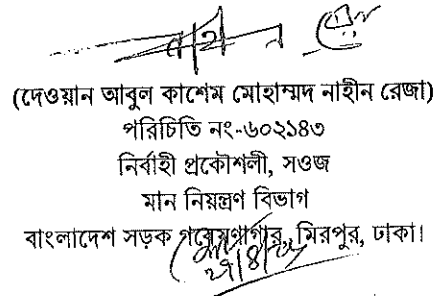 নাহীন রেজা
(দেওয়ান আবুল কাশেম মোহাম্মদ নাহীন রেজা)
পরিচিতি নং-৬০২১৪৩
নির্বাহী প্রকৌশলী, সওজ
মান নিয়ন্ত্রণ বিভাগ
বাংলাদেশ সড়ক গবেষণাগার, মিরপুর, ঢাকা।